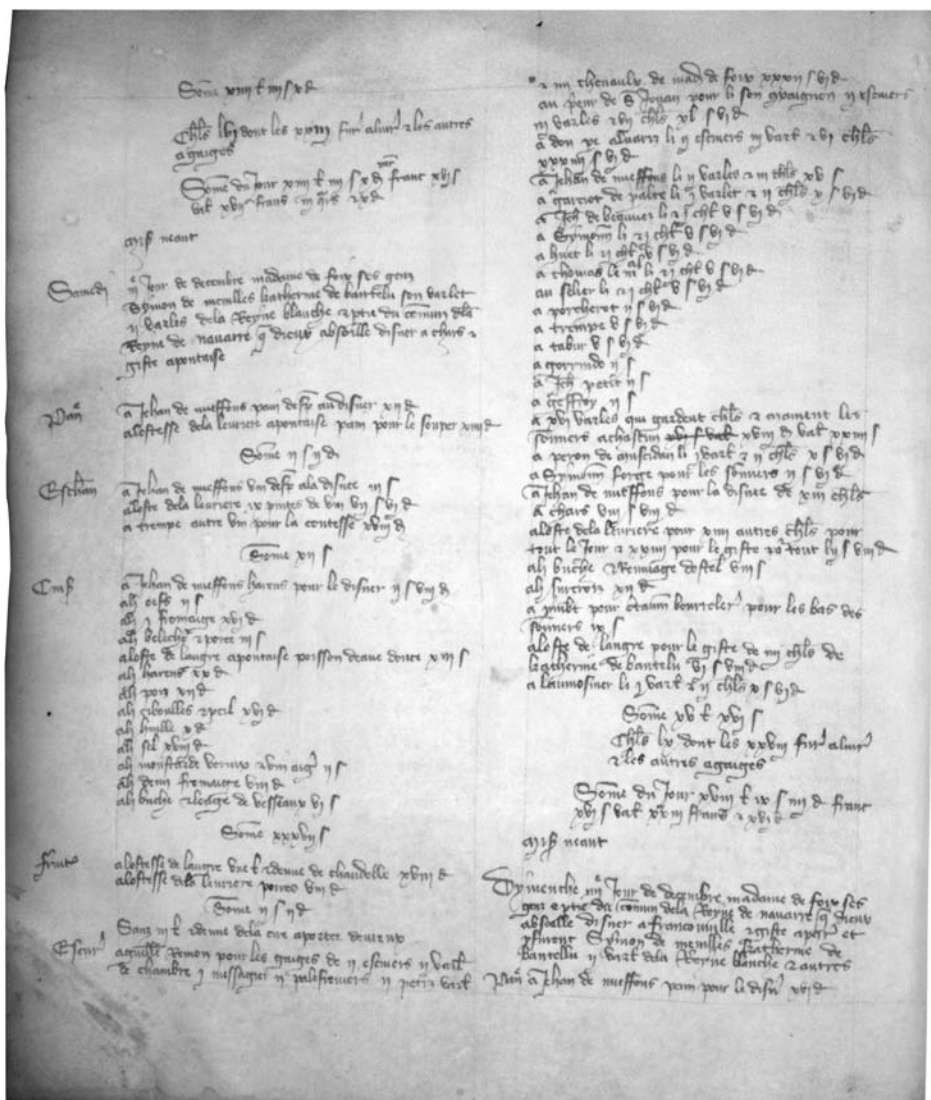 Some xiiii l iii s x d
Chls lvi dont les xxiiii fur alivr & les autres
a gaiges
Some du Jour xiiii l iii s x d par franc xvi s
val xvii frans iii qrs & x d
Mess neant
Samedi iii Jour de decembre madame de foix ses gens
Symon de memilles katherine de bantelu son varlet
ii varles dela Reyne blanche & ptie du comun dela
Reyne de navarre q dieux absoille disner a chars &
giste apontaise
Pan a Jehan de mueffons pain desp au disner xii d
alostesse dela leuriere apontaise pain pour le souper xiiii d
Some ii s ii d
Eschan a Jehan de mueffons vin desp ala disnee iii s
aloste dela leuriere ix pintes de vin vii s vi d
a trempe autre vin pour la contesse xviii d
Some xii s
Cuis a Jehan de mueffons harens pour le disner ii s viii d
ali oefs ii s
ali i fromaige xvi d
ali & poree iii s
aloste de langre apontaise poisson deaue douce xiii s
ali harens xx d
ali pois xii d
ali ciboulles & peil xvi d
ali huille x d
ali sel xviii d
ali moustarde verius & vin aigr ii s
ali demi fromaige viii d
ali buche & loage de vesseaux vi s
Some xxxvii s
Fruit alostesse de langre une l & demie de chandelle xviii d
alostesse dela leuriere poires viii d
Some ii s ii d
Sans iii l & demie dela cire aportee devreux
Escur Remon pour les gaiges de ii escuiers ii varl
de chambre i messagier ii palefreniers ii petis varl
& iiii chevaulx de mad de foix xxxvii s vi d
au peur de S Jouan pour li son gpaignon ii escuiers
iii varles & vii chls xl s vi d
a don pe alvart li ii escuiers iii varl & vi chls
xxxiiii s vi d
a Jehan de mueffons li ii varles & iii chls xv s
a garciot de li i varlet & ii chls x s vi d
a Jeh de beguvier li & i chl v s vi d
a Symonin li & i chl v s vi d
a huet li & i chl v s vi d
a thomas le mal li & i chl v s vi d
au selier li & i chl v s vi d
a porcheret ii s vi d
a trempe v s vi d
a tabur v s vi d
a gorrindo ii s
a Jeh petit ii s
a geffroy ii s
a xvi varles qui gardent chls & amainent les
sommers achascun xviii d val xxiiii s
a peron de li i varl & ii chls x s vi d
a Symonin forge pour les sommers ii s vi d
a Jehan de mueffons pour la disnee de xiii chls
a chars viii s viii d
aloste dela leuriere pour xiiii autres chls pour
tout le Jour & xxiiii pour le giste po tout lii s viii d
ali buche & Remuage dostel viii s
ali surcrois xii d
a pour bourreler pour les bas des
sommers ix s
aloste de langre pour le giste de iii chls de
katherine de bantelu vi s viii d
a laumosnier li i varl & ii chls x s vi d
Some xv l xvi s
Chls lv dont les xxviii fur alivr
& les autres agaiges
Some du Jour xviii l ix s iiii d franc
xvi s val xxiii frans & xvi d
Mess neant
Dymenche iiii Jour de decembre madame de foix ses
gens & ptie du comun dela Reyne de navarre q dieux
absoille disner a franconville & giste a et
Symon de memilles katherine de
bantellu ii varl dela Reyne blanche & autres
Pan a Jehan de mueffons pain pour le disn xvi d